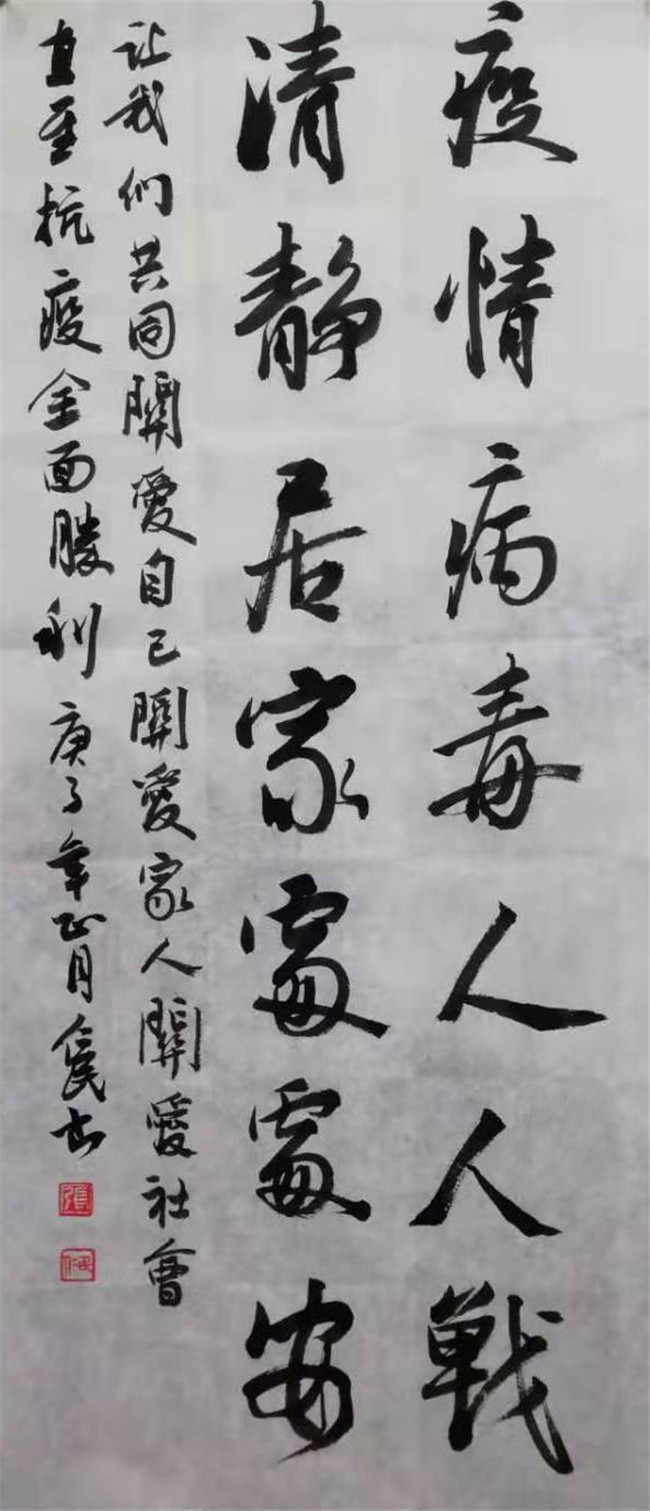 疫情病毒人人戰
清靜居家處處安
让我们共同關愛自己關愛家人關愛社會
直至抗疫全面勝利庚子年正月書
張